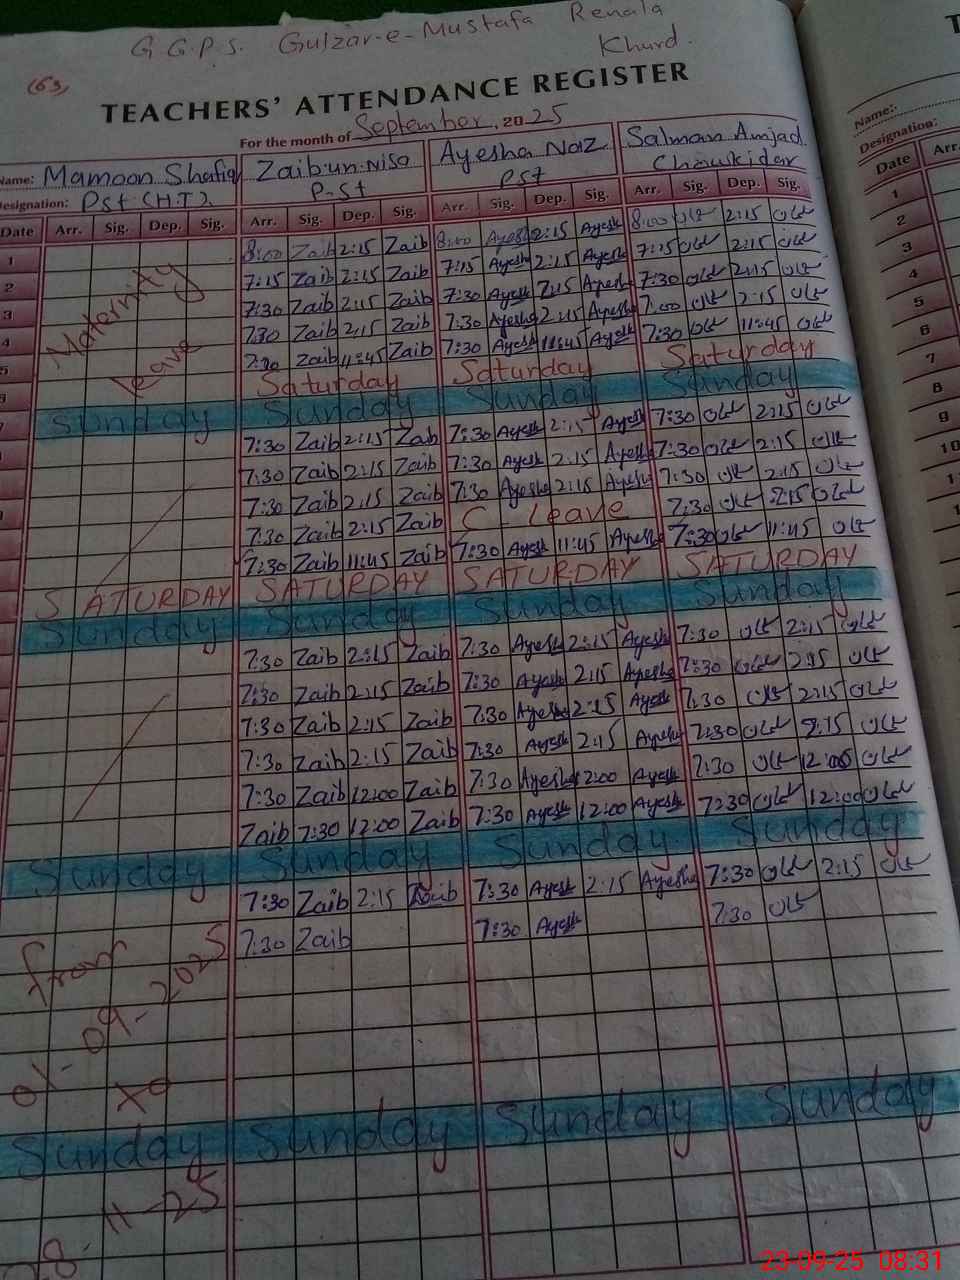 G G.P.S. Gulzar-e-Mustafa Renala
Khurd.
(63)
TEACHERS' ATTENDANCE REGISTER
For the month of September, 2025
Name: Mamoon Shafiq Zaib-un-Nisa Ayesha Naz Salman Amjad
Designation: Pst (H.T). P-St Pst Chowkidar
Date Arr. Sig. Dep. Sig. Arr. Sig. Dep. Sig. Arr. Sig. Dep. Sig. Arr. Sig. Dep. Sig.
1 8:00 Zaib 2:15 Zaib 8:00 Ayesh 2:15 Ayesh 8:00 2:15
2 7:15 Zaib 2:15 Zaib 7:15 Ayesh 2:15 Ayesh 7:15 2:15
3 7:30 Zaib 2:15 Zaib 7:30 Ayesh 2:15 Ayesh 7:30 2:15
4 7:30 Zaib 2:15 Zaib 7:30 Ayesha 2:15 Ayesha 7:00 2:15
5 7:30 Zaib 11:45 Zaib 7:30 Ayesh 11:45 Ayesh 7:30 11:45
Maternity
leave
Saturday Saturday Saturday
Sunday Sunday Sunday Sunday
7:30 Zaib 2:15 Zaib 7:30 Ayesh 2:15 Ayesh 7:30 2:15
7:30 Zaib 2:15 Zaib 7:30 Ayesh 2:15 Ayesh 7:30 2:15
7:30 Zaib 2:15 Zaib 7:30 Ayesha 2:15 Ayesha 7:30 2:15
7:30 Zaib 2:15 Zaib C - Leave 7:30 2:15
7:30 Zaib 11:45 Zaib 7:30 Ayesh 11:45 Ayesha 7:30 11:45
SATURDAY SATURDAY SATURDAY SATURDAY
Sunday Sunday Sunday Sunday
7:30 Zaib 2:15 Zaib 7:30 Ayesh 2:15 Ayesh 7:30 2:15
7:30 Zaib 2:15 Zaib 7:30 Ayesh 2:15 Ayesha 7:30 2:15
7:30 Zaib 2:15 Zaib 7:30 Ayesh 2:15 Ayesh 7:30 2:15
7:30 Zaib 2:15 Zaib 7:30 Ayesh 2:15 Ayesha 7:30 2:15
7:30 Zaib 12:00 Zaib 7:30 Ayesha 12:00 Ayesh 7:30 12:00
Zaib 7:30 12:00 Zaib 7:30 Ayesh 12:00 Ayesh 7:30 12:00
Sunday Sunday Sunday Sunday
7:30 Zaib 2:15 Zaib 7:30 Ayesh 2:15 Ayesha 7:30 2:15
7:30 Zaib 7:30 Ayesh 7:30
from
01-09-2025
to
Sunday Sunday Sunday Sunday
28-11-25
Name:
Designation:
Date Arr.
1
2
3
4
5
6
7
8
9
10
23-09-25 08:31